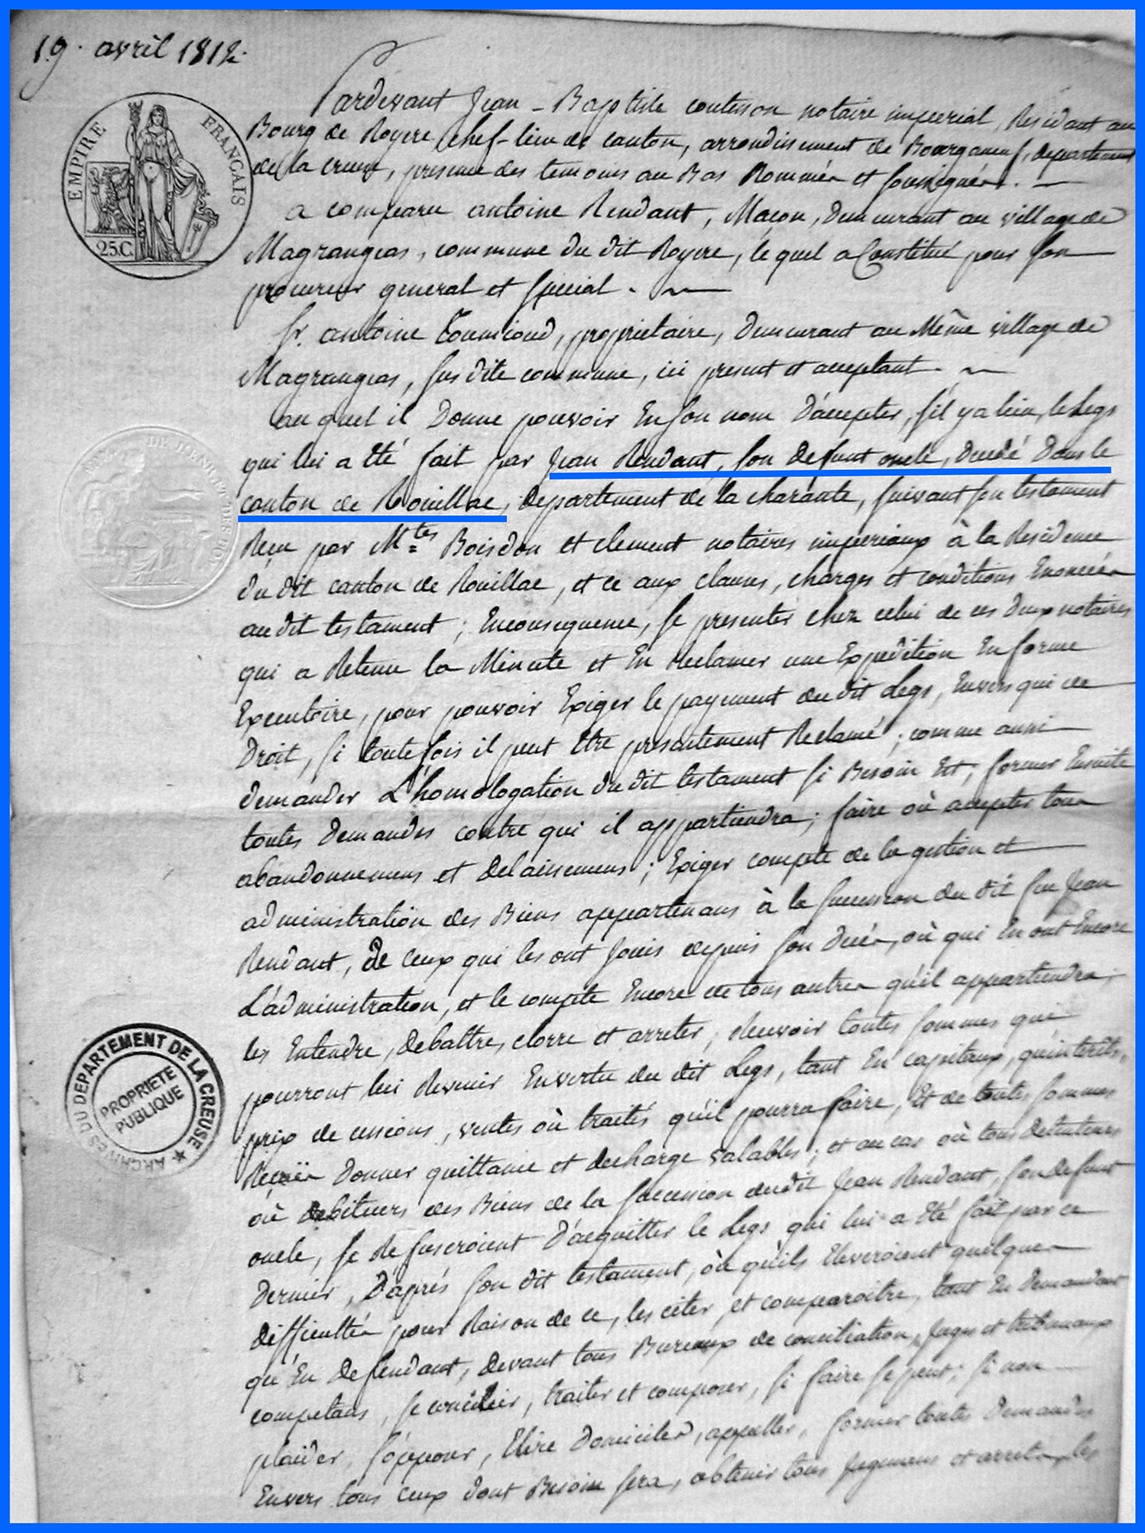 19. avril 1812.
EMPIRE FRANÇAIS
25C.
Pardevant Jean-Baptiste coutisson notaire imperial, Residant au
Bourg de Royere chef-lieu de canton, arrondissement de Bourganeuf, departement
de la creuse, presence des temoins au Bas Nommés et soussignés. —
a comparu antoine Rendant, Maçon, Demeurant au village de
Magrangeas, commune du dit Royere, le quel a Constitué pour son
procureur general et special. —
Sr. antoine Toumieoud, proprietaire, Demeurant au Même village de
Magrangeas, sus dite commune, ici present et acceptant. —
au quel il Donne pouvoir En son nom D'accepter, s'il y a lieu, le Legs
qui lui a été fait par Jean Rendant, son defunt oncle, Decedé Dans le
canton de Rouillac, departement de la charante, suivant son testament
Reçu par Mtes Boisdon et clement notaires imperiaux à la Residence
du dit canton de Rouillac, et ce aux clauses, charges et conditions Enoncées
au dit testament; En consequence, se presenter chez celui de ces deux notaires
qui a Retenu la Minute et En reclamer une Expedition En forme
Executoire, pour pouvoir Exiger le payement du dit Legs, Envers qui de
Droit, si toutefois il peut être presentement Reclamé; comme aussi
demander L'homologation du dit testament si Besoin Est, former Ensuite
toutes demandes contre qui il appartiendra; faire où accepter tous
abandonnemens et delaissemens; Exiger compte de la gestion et
administration des Biens appartenans à la succession du dit feu Jean
Rendant, De ceux qui les ont Jouis depuis son Decés, où qui En ont Encore
L'administration, et le compte Encore de tous autres qu'il appartiendra,
les Entendre, debattre, clorre et arreter; Recevoir toutes sommes qui
pourront lui Revenir En vertu du dit Legs, tant En capitaux, qu'interêts,
prix de cessions, ventes où traités qu'il pourra faire, Et de toutes sommes
Reçues Donner quittance et decharge valables; et au cas où tous Detenteurs
où debiteurs des Biens de la succession dudit Jean Rendant, son defunt
oncle, se Refuseroient D'acquitter le Legs qui lui a été fait par ce
Dernier, D'aprés son dit testament, où qu'ils Eleveroient quelques
difficultés pour Raison de ce, les citer, et comparoitre, tant En Demandant
qu'En Defendant, devant tous Bureaux de conciliation, Juges et tribunaux
competans, se concilier, traiter et composer, si faire se peut; si non
plaider, s'opposer, Elire Domiciles, appeller, former toutes Demandes
Envers tous ceux dont Besoin sera, obtenir tous Jugemens et arrets, les
ARCHIVES DU DEPARTEMENT DE LA CREUSE
PROPRIETE
PUBLIQUE